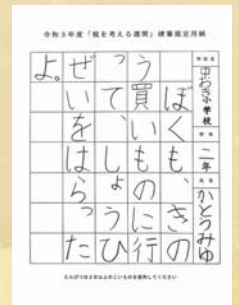 令和3年度「税を考える週間」硬筆規定用紙
学校名
小学校
学年
二年
氏名
かとうみゆ
ぼくも、きの
う買いものに行
って、しょうひ
ぜいをはらった
よ。
以上のこいものを使用してください